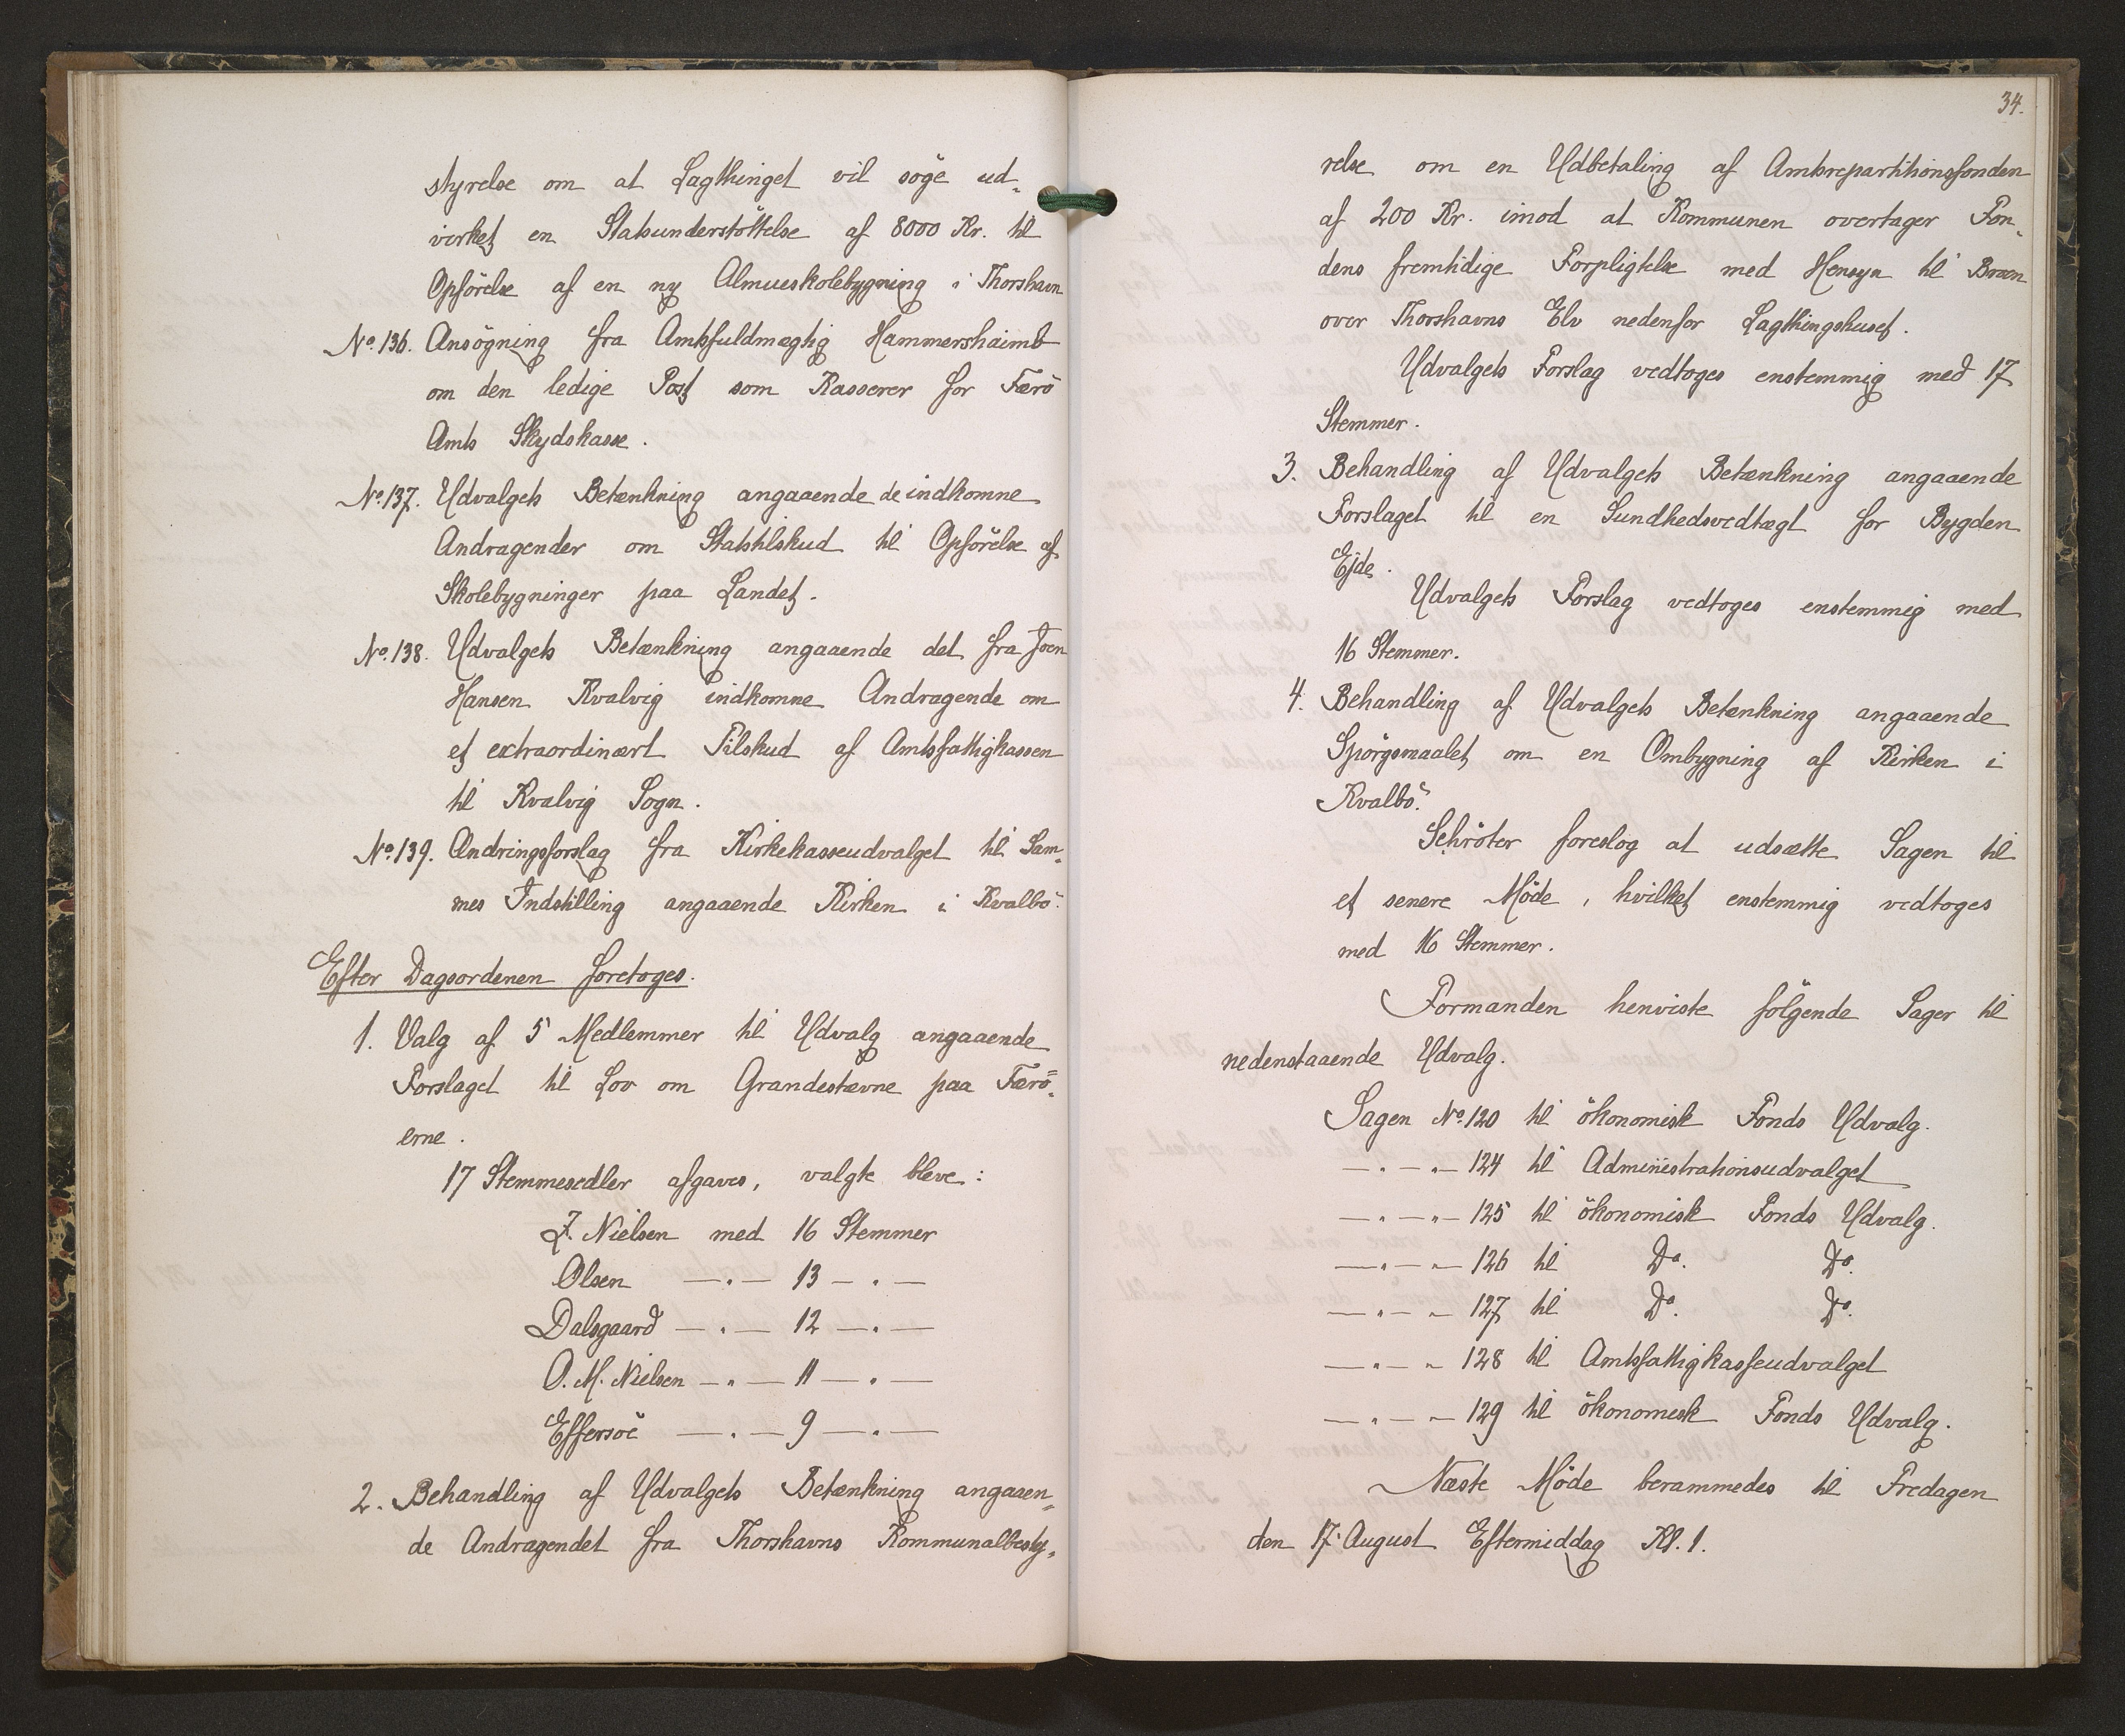 styrelse om at Lagthinget vil söge ud-
virket en Statsunderstöttelse af 8000 Kr. til
Opförelse af en ny Almueskolebygning i Thorshavn
No. 136. Ansögning fra Amtsfuldmægtig Hammershaimb
om den ledige Post som Kasserer for Færö
Amts Skydskasse.
No. 137. Udvalgets Betænkning angaaende de indkomne
Andragender om Statstilskud til Opförelse af
Skolebygninger paa Landet.
No. 138. Udvalgets Betænkning angaaende det fra Joen
Hansen Kvalvig indkomne Andragende om
et extraordinært Tilskud af Amtsfattigkassen
til Kvalvig Sogn.
No. 139. Ændringsforslag fra Kirkekasseudvalget til Sam-
mes Indstilling angaaende Kirken i Kvalbö.
Efter Dagsordenen foretoges.
1. Valg af 5 Medlemmer til Udvalg angaaende
Forslaget til Lov om Grandestævne paa Færö-
erne.
17 Stemmesedler afgaves, valgte bleve:
J. Nielsen med 16 Stemmer
Olsen —〃— 13 —〃—
Dalsgaard —〃— 12 —〃—
O. M. Nielsen —〃— 11 —〃—
Effersöe —〃— 9 —〃—
2. Behandling af Udvalgets Betænkning angaaen-
de Andragendet fra Thorshavns Kommunalbesty-
34.
relse om en Udbetaling af Amtsrepartitionsfonden
af 200 Kr. imod at Kommunen overtager Fon-
dens fremtidige Forpligtelse med Hensyn til Broen
over Thorshavns Elv nedenfor Lagthingshuset.
Udvalgets Forslag vedtoges enstemmig med 17
Stemmer.
3. Behandling af Udvalgets Betænkning angaaende
Forslaget til en Sundhedsvedtægt for Bygden
Ejde.
Udvalgets Forslag vedtoges enstemmig med
16 Stemmer.
4. Behandling af Udvalgets Betænkning angaaende
Spörgsmaalet om en Ombygning af Kirken i
Kvalbö.
Schröter foreslog at udsætte Sagen til
et senere Möde, hvilket enstemmig vedtoges
med 16 Stemmer.
Formanden henviste fölgende Sager til
nedenstaaende Udvalg.
Sagen No. 120 til ökonomisk Fonds Udvalg.
—〃—〃— 124 til Administrationsudvalget
—〃—〃— 125 til ökonomisk Fonds Udvalg.
—〃—〃— 126 til Do. Do.
—〃—〃— 127 til Do. Do.
—〃—〃— 128 til Amtsfattigkasseudvalget
—〃—〃— 129 til ökonomisk Fonds Udvalg.
Næste Möde berammedes til Fredagen
den 17. August Eftermiddag Kl. 1.